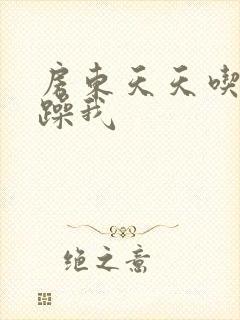 房东天天喫
躁我
绝之意